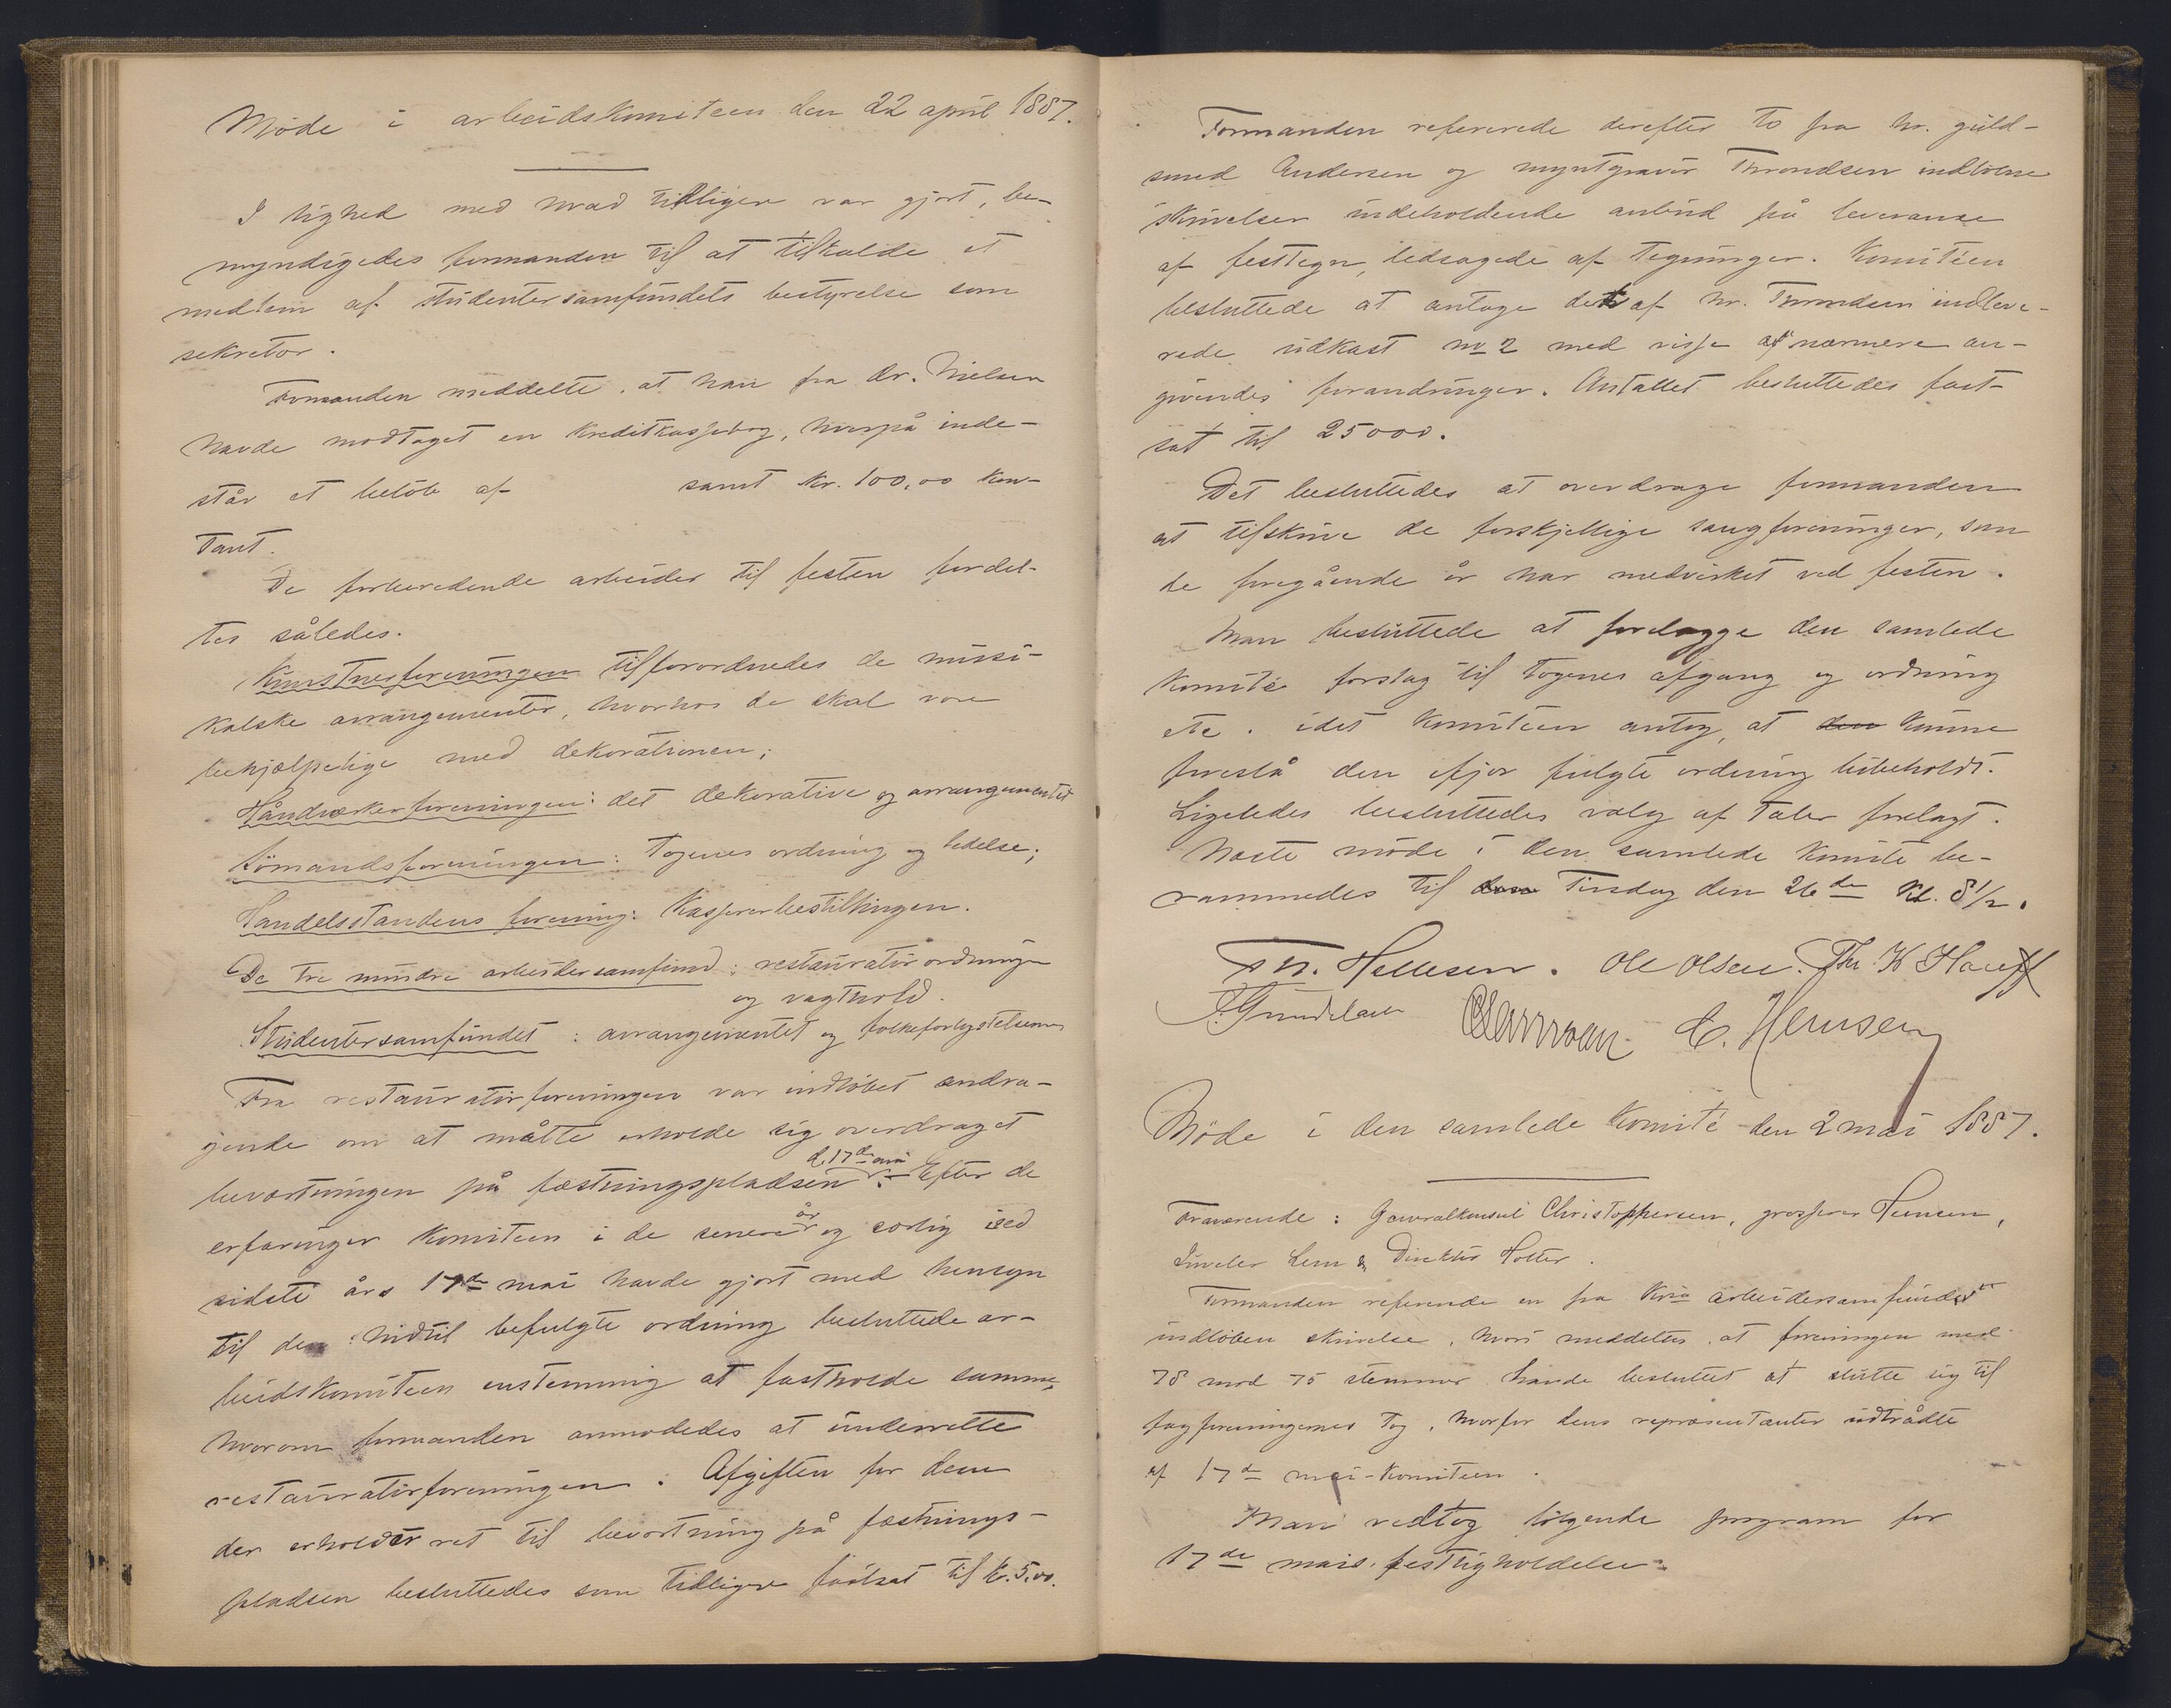 Møde i arbeidskomiteen den 22 april 1887.
I lighed med hvad tidligere var gjort, be-
myndigedes formanden til at tilkalde et
medlem af studentersamfundets bestyrelse som
sekretær.
Formanden meddelte, at han fra dr. Nielsen
havde modtaget en kreditkassebog, hvorpå inde-
står et beløb af samt kr. 100,00 kon-
tant.
De forberedende arbeider til festen fordel-
tes således.
Kunstnerforeningen tilforordnedes de musi-
kalske arrangementer, hvorhos de skal være
behjælpelige med dekorationen;
Håndværkerforeningen: det dekorative og arrangementet
Sømandsforeningen: Togenes ordning og ledelse;
Handelsstandens forening: Kassererbestillingen.
De tre mindre arbeidersamfund: restauratørordningen
og vagthold.
Studentersamfundet: arrangementet og folkeforlystelserne
Fra restauratørforeningen var indløbet andra-
gende om at måtte erholde sig overdraget
d. 17de mai
beværtningen på fæstningspladsen. Efter de
erfaringer komiteen i de senere år og særlig ved
sidste års 17de mai havde gjort med hensyn
til den hidtil befulgte ordning besluttede ar-
beidskomiteen enstemmig at fastholde samme,
hvorom formanden anmodedes at underrette
restauratørforeningen. Afgiften for dem
der erholder ret til beværtning på fæstnings-
pladsen besluttedes som tidligere fastsat til kr. 5,00.
Formanden refererede derefter to fra hr. guld-
smed Andersen og myntgravør Throndsen indløbne
skrivelser indeholdende anbud på leverance
af festtegn, ledsagede af tegninger. Komiteen
besluttede at antage det af hr. Throndsen indleve-
rede udkast no 2 med visse nærmere an-
givendes forandringer. Antallet besluttedes fast-
sat til 25000.
Det besluttedes at overdrage formanden
at tilskrive de forskjellige sangforeninger, som
de foregående år har medvirket ved festen.
Man besluttede at forelægge den samlede
komité forslag til togenes afgang og ordning
etc. idet komiteen antog, at den kunne
foreslå den ifjor fulgte ordning bibeholdt.
Ligeledes besluttedes valg af taler forelagt.
Næste møde i den samlede komite be-
rammedes til Tirsdag den 26de kl. 8 1/2.
Hellesen. Ole Olsen. Th. K Hauff
C. Hemsen
Møde i den samlede komité den 2 mai 1887.
Fraværende: Generalkonsul Christophersen, grosserer Hemsen,
Juveler Lem & Direktør Holter.
Formanden refererede en fra Kria arbeidersamfundet
indløben skrivelse, hvori meddeltes, at foreningen med
78 mod 75 stemmer havde besluttet at slutte sig til
fagforeningernes tog, hvorfor dens repræsentanter udtrådte
af 17de mai-komiteen.
Man vedtog følgende program for
17de mais festligholdelse: